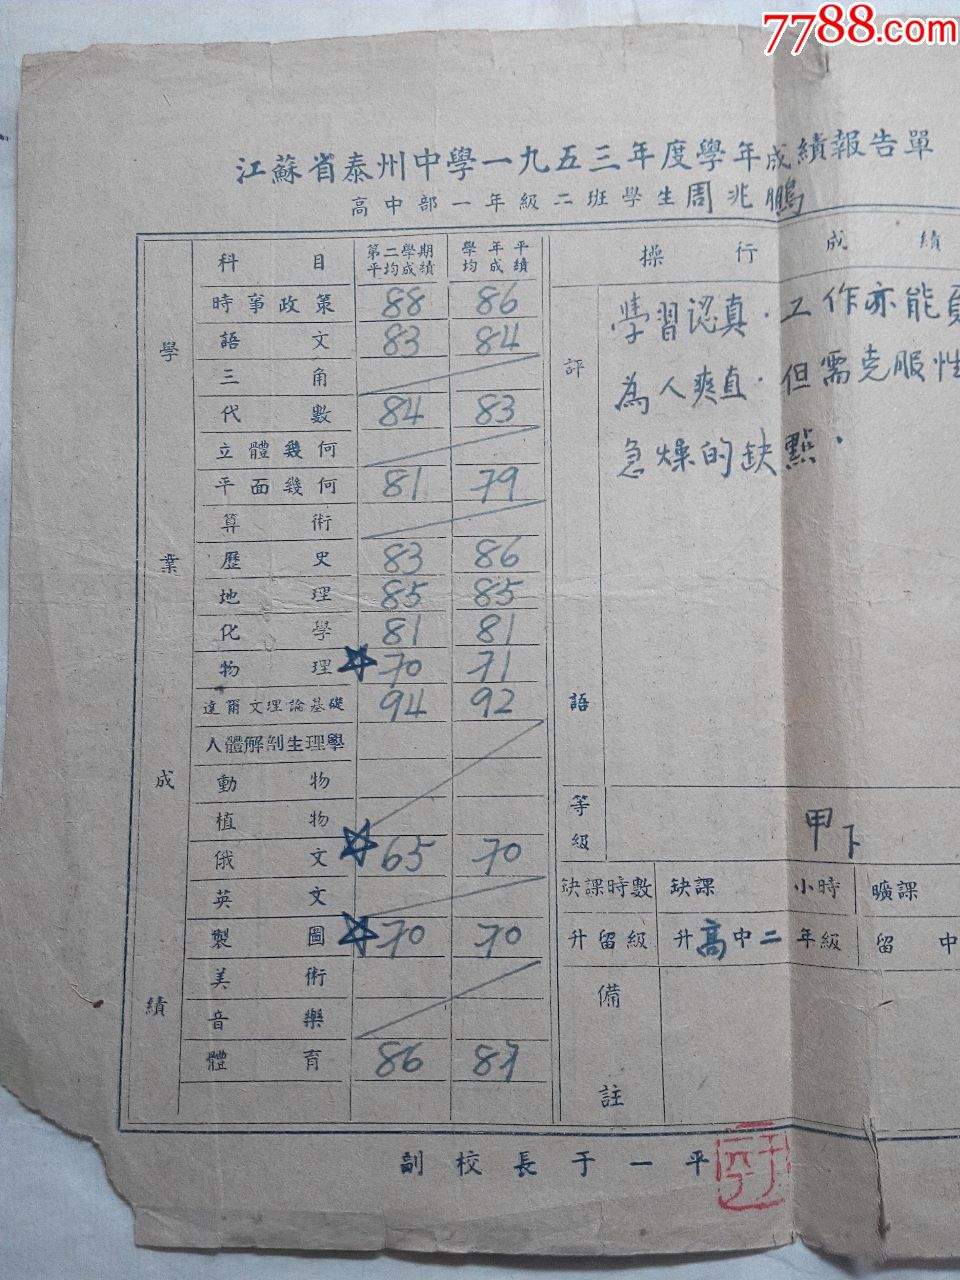 7788.com
中国收藏热线
江蘇省泰州中學一九五三年度學年成績報告單
高中部一年級二班學生周兆鵬
學業成績
科目 第二學期平均成績 學年平均成績
時事政策 88 86
語文 83 84
三角
代數 84 83
立體幾何
平面幾何 81 79
算術
歷史 83 86
地理 85 85
化學 81 81
物理 ☆70 71
達爾文理論基礎 94 92
人體解剖生理學
動物
植物
俄文 ☆65 70
英文
製圖 ☆70 70
美術
音樂
體育 86 87
操行成績
評語
學習認真．工作亦能
為人爽直．但需克服性
急燥的缺點．
等級 甲下
缺課時數 缺課 小時 曠課
升留級 升高中二年級 留中
備註
副校長于一平